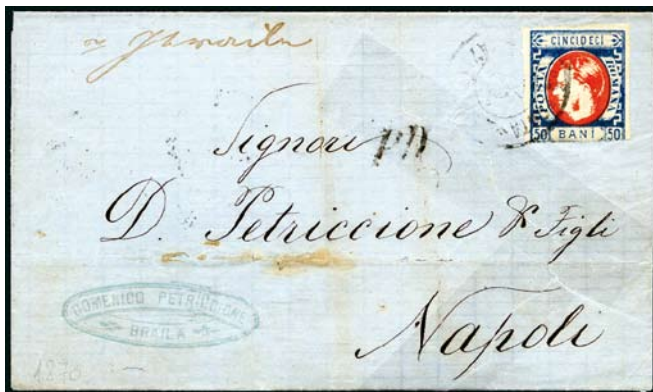 CINCIDECI
POSTA ROMANA
50 BANI 50
Signori
PD
D. Petriccione & Figli
DOMENICO PETRICCIONE
BRAILA
Napoli
1870